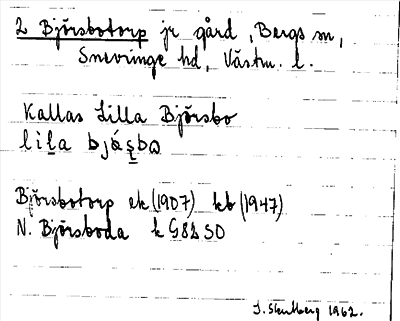 2 Björsbotorp jr gård, Bergs sn,
Snevringe hd, Västm. l.
Kallas Lilla Björsbo
Björsbotorp ek (1907) kb (1947)
N. Björsboda k G82 SO
1962.